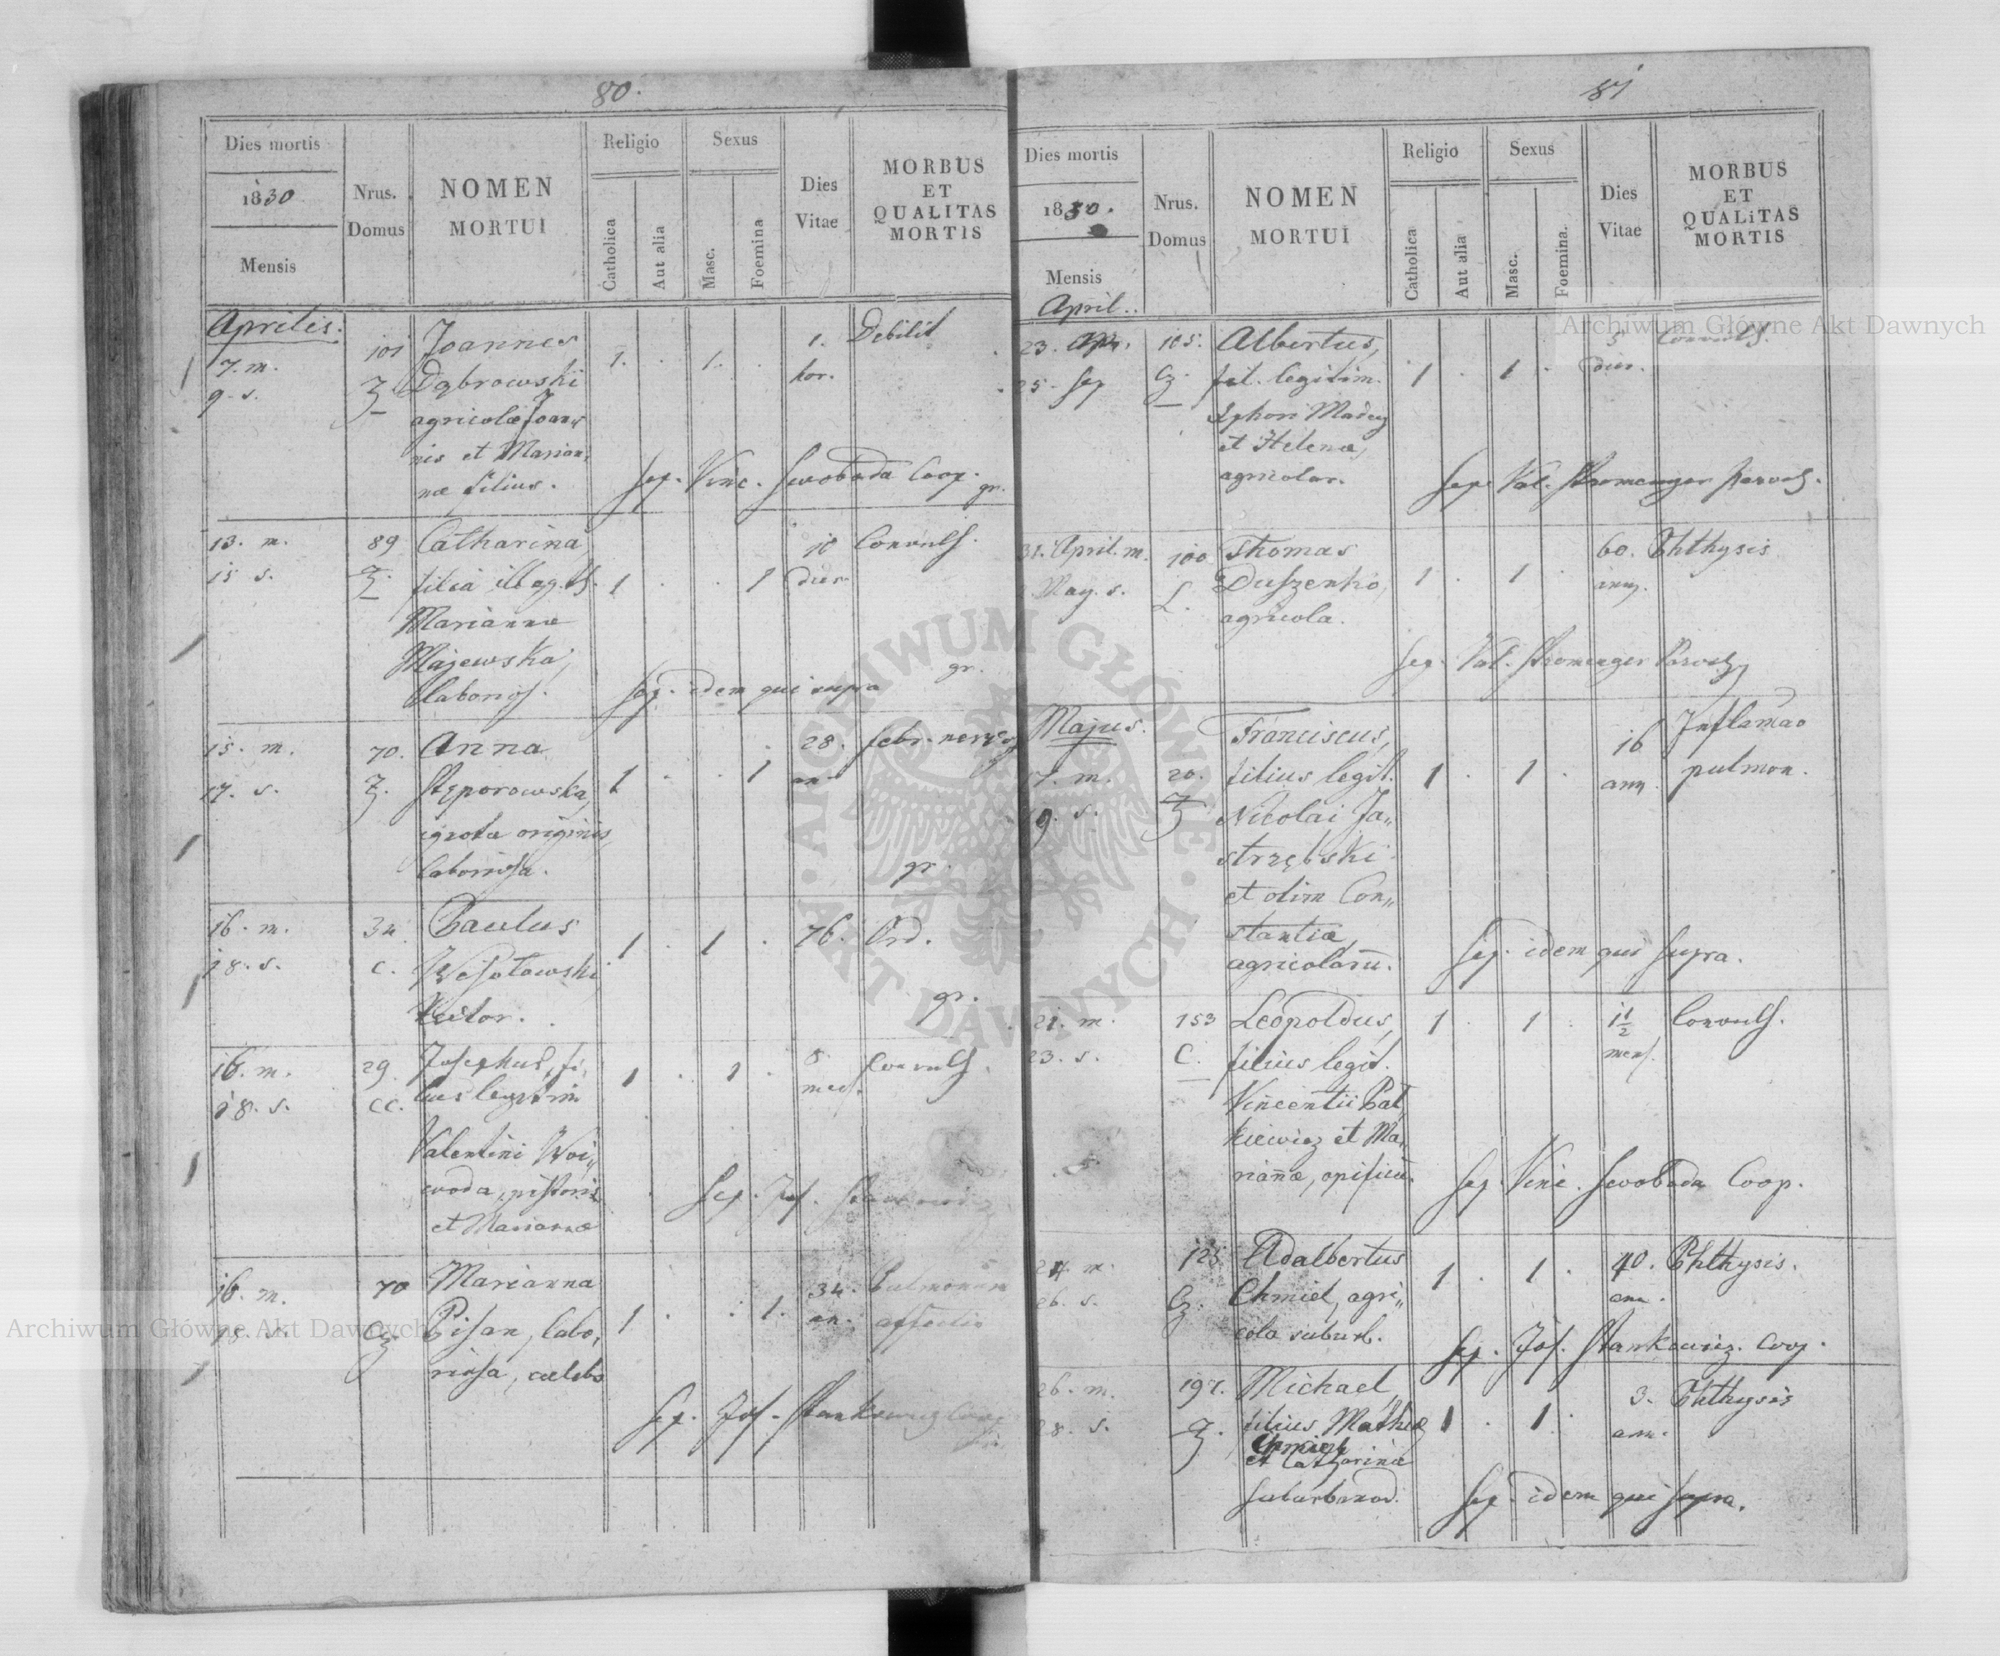 80.
Dies mortis
1830
Mensis
Nrus.
Domus
NOMEN
MORTUI
Religio
Catholica
Aut alia
Sexus
Masc.
Foemina
Dies
Vitae
MORBUS
ET
QUALITAS
MORTIS
Aprilis.
7. m.
9. s.
101
Joannes
Dąbrowski
agricolæ Joan„
nis et Marian„
næ filius.
1. . 1. .
1.
hor.
Debilit
Sep. Vinc. Swoboda Coop.
gr.
13. m.
15 s.
89
Catharina
filia illeg.
Mariannæ
Majewska,
laborios.
1 . . 1
10
dier.
Convuls.
Sep. idem qui supra
gr.
15. m.
17. s.
70.
Anna
Stęporowska,
ignotæ originis,
laboriosa.
1 . . 1
28.
an.
febr. nervos
gr.
16. m.
18. s.
34
C.
Paulus
Wesołowski
1 . 1 .
76.
Ord.
gr.
16. m.
18. s.
29.
CC.
Josephus, fi„
lius legitim
Valentini Woi„
woda, pistoris
et Mariannæ
1 . 1 .
8.
mens.
Convuls.
Sep. Jos. Stankowicz
16. m.
18. s.
70
Cz
Marianna
Pisan, labo„
riosa, cælebs
1 . . 1.
34.
an.
Pulmonum
affectio
Sep. Jos. Stankiewicz Coop
81
Dies mortis
1830.
Mensis
Nrus.
Domus
NOMEN
MORTUI
Religio
Catholica
Aut alia
Sexus
Masc.
Foemina.
Dies
Vitae
MORBUS
ET
QUALITAS
MORTIS
April.
23. Apr.
25. Sep
105.
Cz.
Albertus,
fil. legitim.
et Helenæ,
agricolar.
1 . 1 .
5
dier.
Convuls.
Sep. Val. Stromenger Paroch.
31. April. m.
May. s.
100
L.
Thomas
Duszenko,
agricola.
1 . 1 .
60.
ann.
Phthysis
Sep. Val. Stromenger Paroch
Majus.
17. m.
19. s.
20.
Franciscus,
filius legit.
Nicolai Ja„
strzębski
et olim Con„
stantiæ
agricolarū.
1 . 1 .
16
ann.
Inflamāo
pulmon.
Sep. idem qui supra.
21. m.
23. s.
153
C.
Leopoldus,
filius legit.
Vincentii Pat„
kiewicz et Ma„
riannæ, opificū.
1 . 1 .
1 1/2
mens.
Convuls.
Sep. Vinc. Swoboda Coop.
24 m.
26. s.
125
Cz.
Adalbertus
Chmiel, agri„
cola suburb.
1 . 1 .
40.
ann.
Phthysis.
Sep. Jos. Stankiewicz. Coop.
26. m.
28. s.
197.
Michael,
filius Mathiæ
Chmiel
et Catharinæ
suburbanor.
1 . 1 .
3.
ann.
Phthysis
Sep. idem qui supra.
Archiwum Główne Akt Dawnych
Archiwum Główne Akt Dawnych
ARCHIWUM GŁÓWNE · AKT DAWNYCH ·